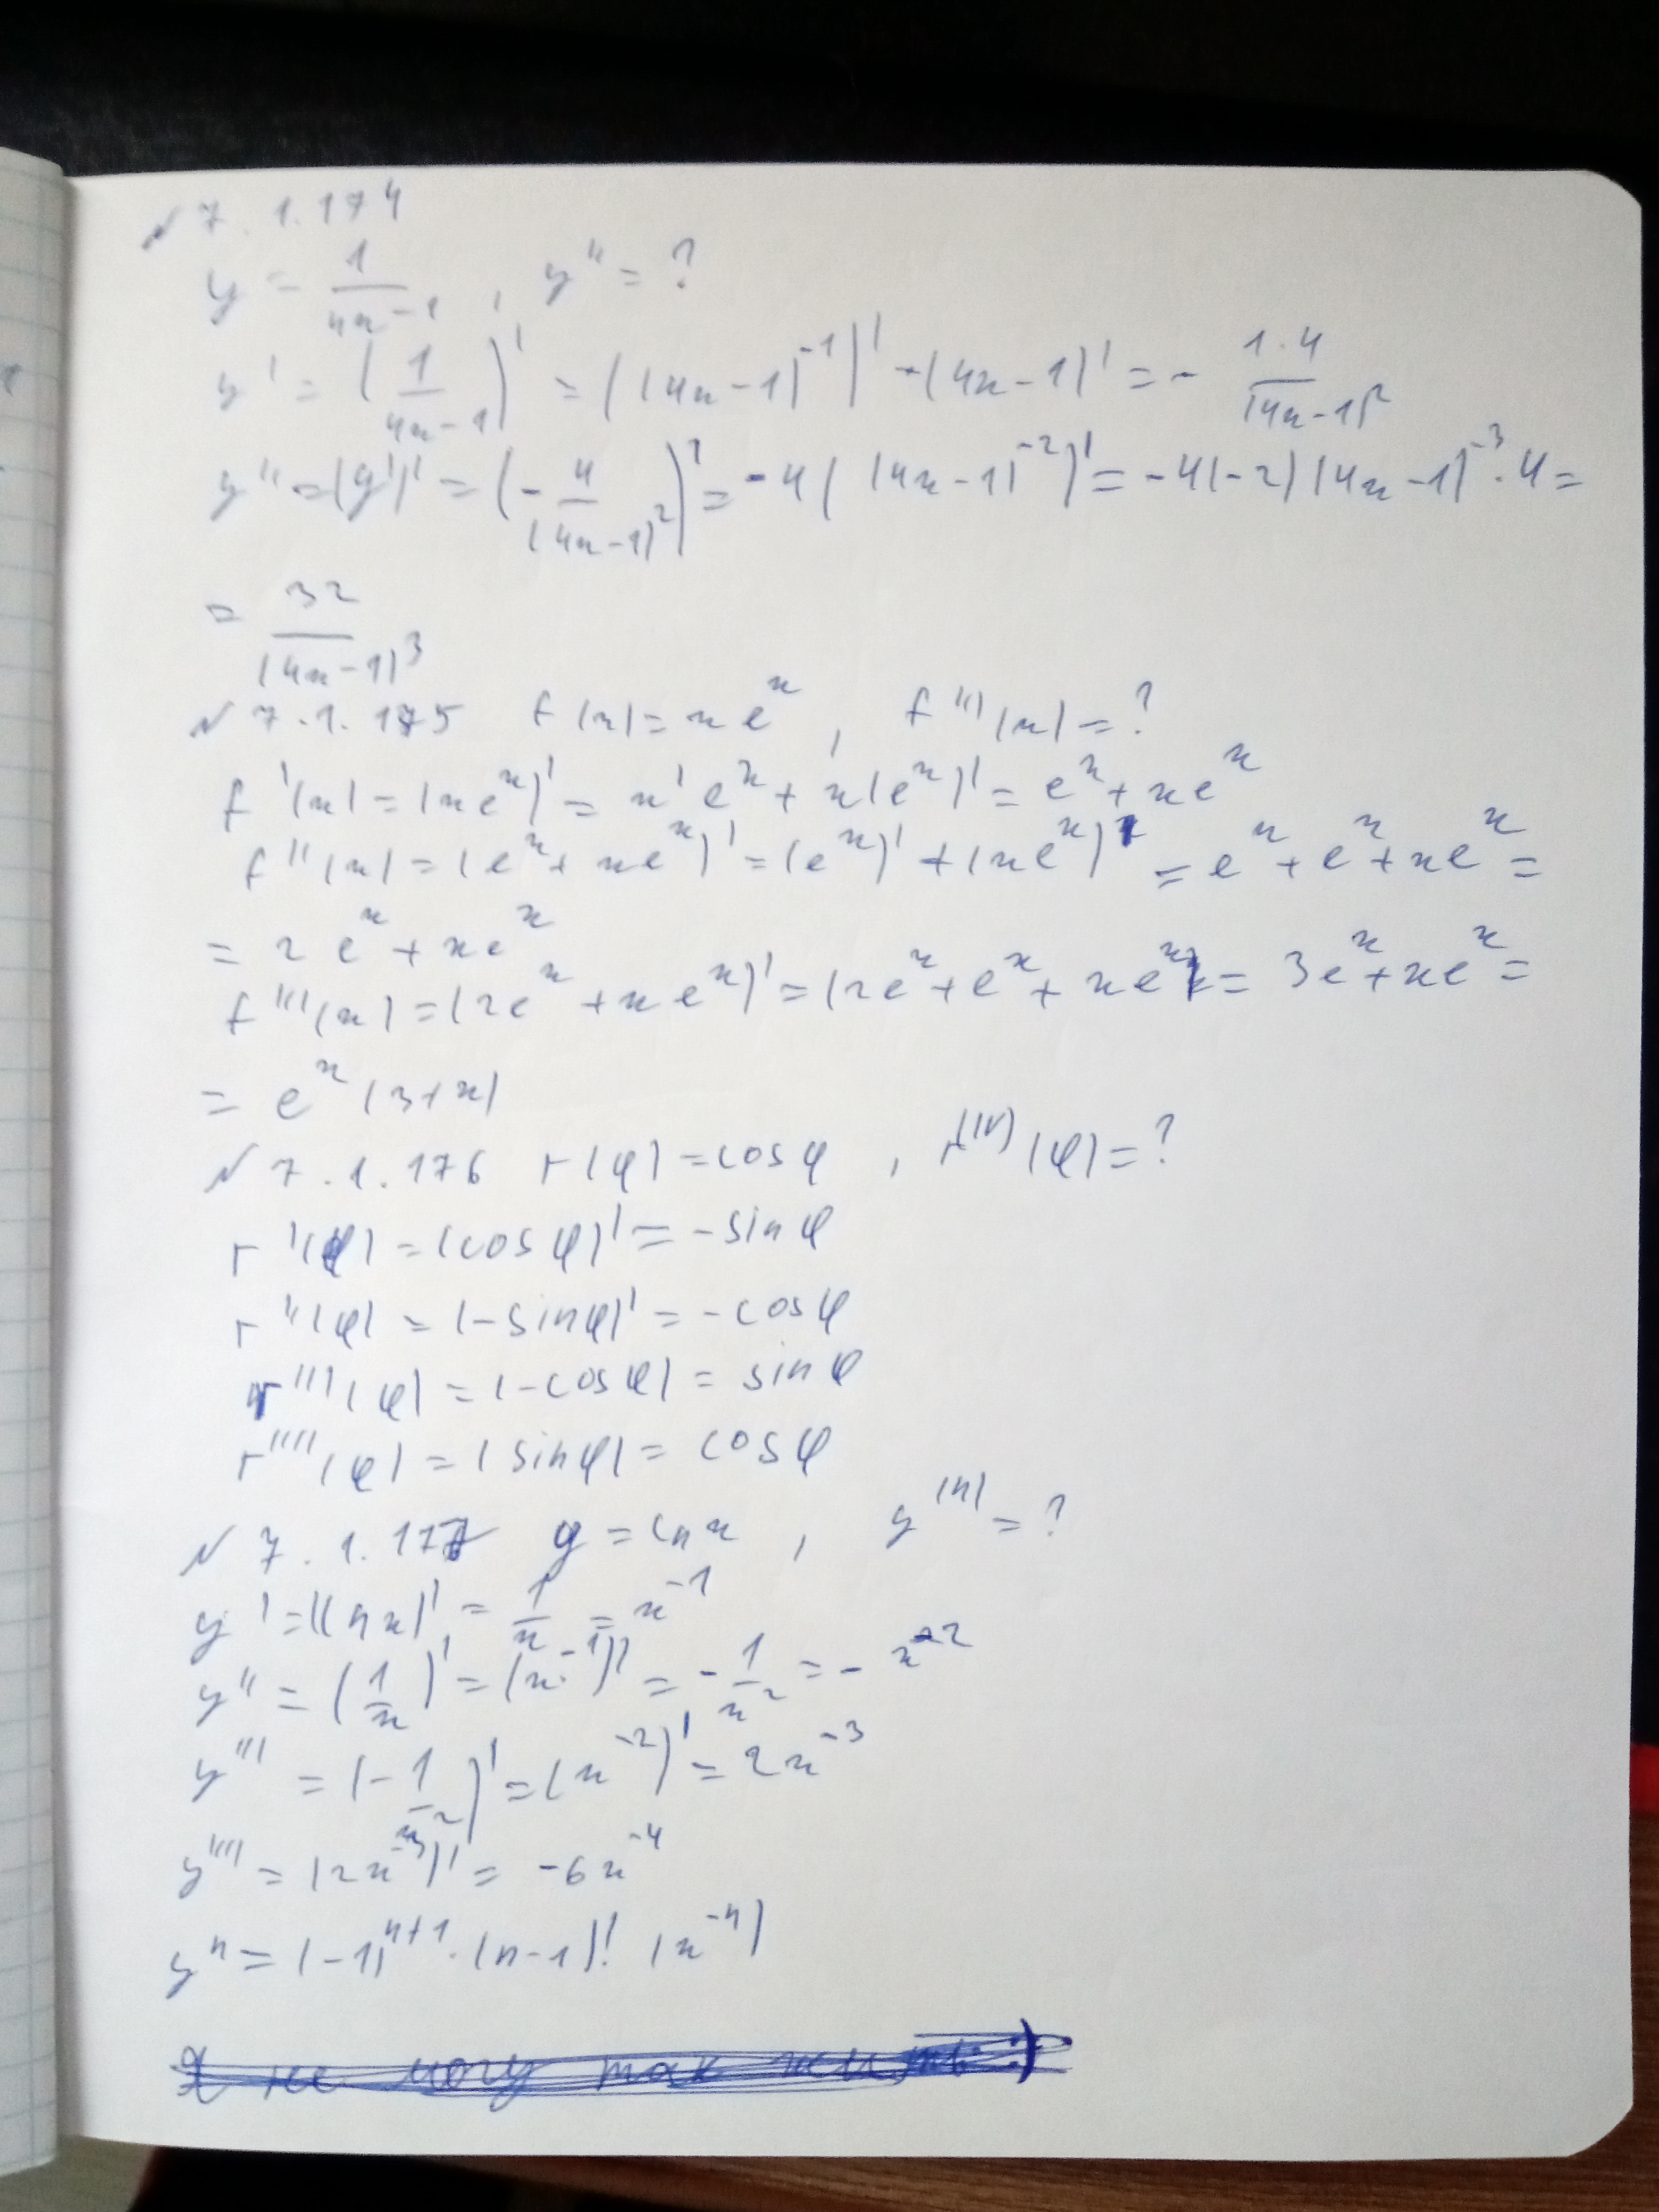 № 7.1.174
y = 1/(4x-1), y'' = ?
y' = (1/(4x-1))' = ((4x-1)^-1)' · (4x-1)' = - (1·4)/(4x-1)^2
y'' = (y')' = (- 4/(4x-1)^2)' = -4((4x-1)^-2)' = -4(-2)(4x-1)^-3 · 4 =
= 32/(4x-1)^3
№ 7.1.175 f(x) = x e^x, f'''(x) = ?
f'(x) = (x e^x)' = x' e^x + x(e^x)' = e^x + x e^x
f''(x) = (e^x + x e^x)' = (e^x)' + (x e^x)' = e^x + e^x + x e^x =
= 2 e^x + x e^x
f'''(x) = (2e^x + x e^x)' = (2e^x + e^x + x e^x) = 3e^x + x e^x =
= e^x (3+x)
№ 7.1.176 r(φ) = cos φ, r^(IV)(φ) = ?
r'(φ) = (cos φ)' = -sin φ
r''(φ) = (-sin φ)' = -cos φ
r'''(φ) = (-cos φ) = sin φ
r''''(φ) = (sin φ) = cos φ
№ 7.1.177 y = ln x, y^(n) = ?
y' = (ln x)' = 1/x = x^-1
y'' = (1/x)' = (x^-1)' = - 1/x^2 = - x^-2
y''' = (- 1/x^2)' = (x^-2)' = 2x^-3
y'''' = (2x^-3)' = -6x^-4
y^n = (-1)^n+1 · (n-1)! (x^-n)
Я не могу так жить :)